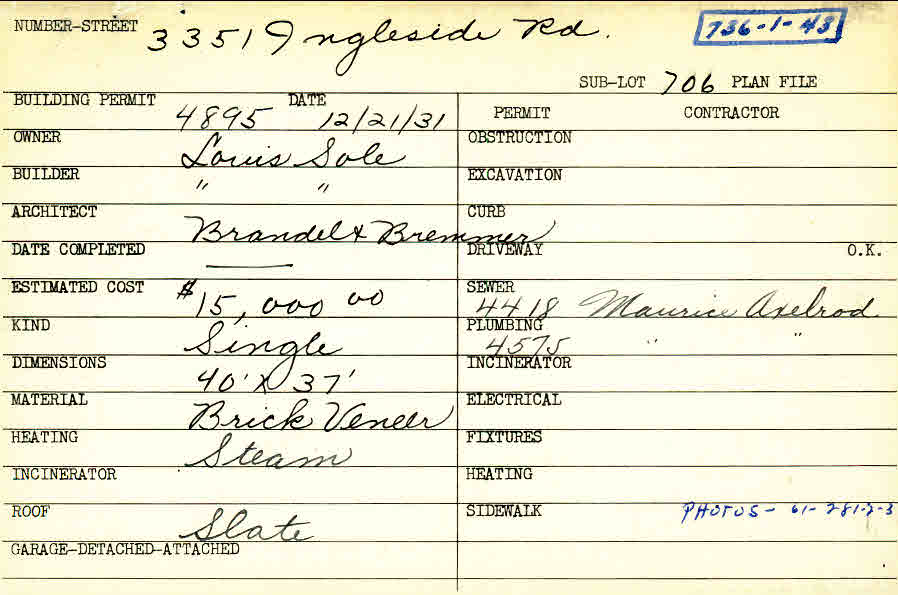 NUMBER-STREET 3351 Ingleside Rd. 736-1-43
SUB-LOT 706 PLAN FILE
BUILDING PERMIT 4895 DATE 12/21/31
PERMIT CONTRACTOR
OWNER Louis Sole
OBSTRUCTION
BUILDER " "
EXCAVATION
ARCHITECT Brandel & Bremmer
CURB
DATE COMPLETED ———
DRIVEWAY O.K.
ESTIMATED COST $15,000 00
SEWER 4418 Maurice Axelrod
KIND Single
PLUMBING 4575 " "
DIMENSIONS 40' X 37'
INCINERATOR
MATERIAL Brick Veneer
ELECTRICAL
HEATING Steam
FIXTURES
INCINERATOR
HEATING
ROOF Slate
SIDEWALK PHOTOS - 61-281-2-3
GARAGE-DETACHED-ATTACHED